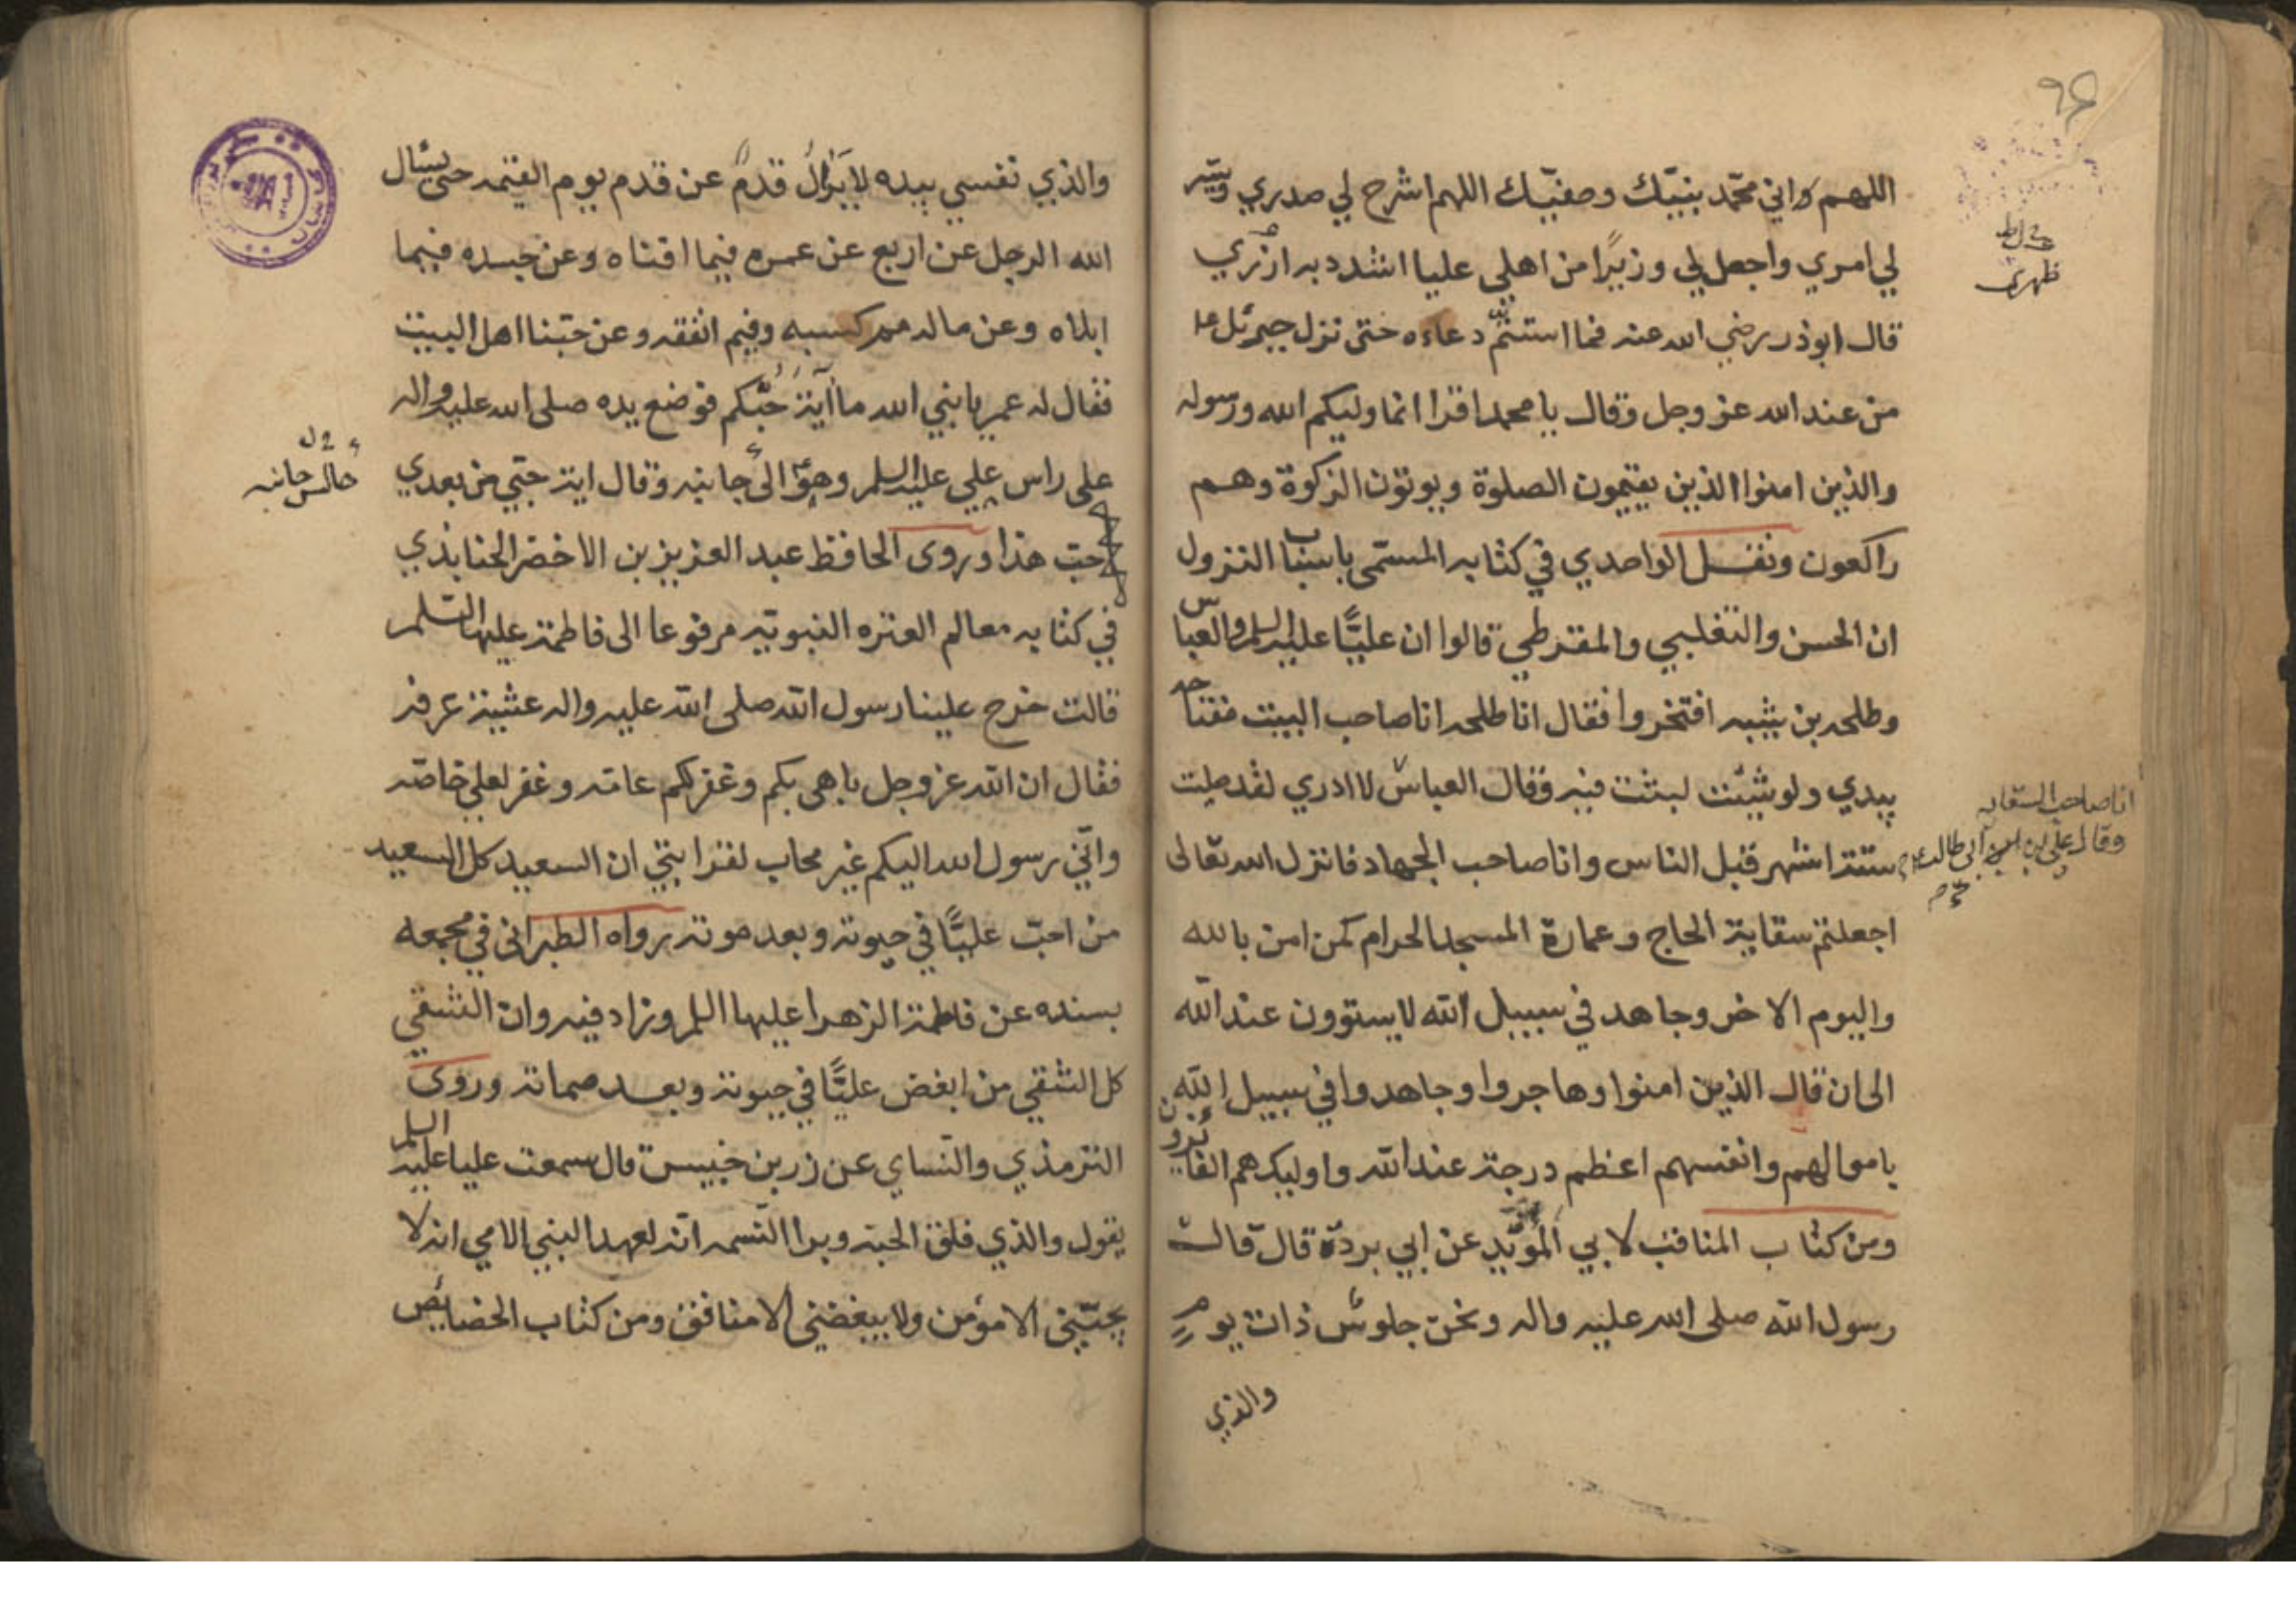 ٩٤
اللهم واني محمد بنبيك وصفيك اللهم اشرح لي صدري ويسر
لي امري واجعل لي وزيرا من اهلي عليا اشدد به ازري
ظهري
قال ابوذر رضي الله عنه فما استتم دعاءه حتى نزل جبرئيل ع
من عند الله عز وجل وقال يا محمد اقرا انما وليكم الله ورسوله
والذين امنوا الذين يقيمون الصلوة ويوتون الزكوة وهم
راكعون ونقل الواحدي في كتابه المسمى باسباب النزول
ان الحسن والتغلبي والمقرطي قالوا ان عليًّا عليه السلم والعباس
وطلحه بن شيبه افتخروا فقال انا طلحه انا صاحب البيت مفتاحه
بيدي ولو شئت لبثت فيه وقال العباس لا ادري لقد صليت
انا صاحب السقايه
وقال علي بن ابي طالب ع
ستة اشهر قبل الناس وانا صاحب الجهاد فانزل الله تعالى
اجعلتم سقاية الحاج وعمارة المسجد الحرام كمن امن بالله
واليوم الاخر وجاهد في سبيل الله لا يستوون عند الله
الى ان قال الذين امنوا وهاجروا وجاهدوا في سبيل الله
باموالهم وانفسهم اعظم درجة عند الله واوليك هم الفائزون
ومن كتاب المناقب لابي المؤيد عن ابي بردة قال قالت
رسول الله صلى الله عليه واله ونحن جلوس ذات يوم
والذي
والذي نفسي بيده لا يزال قدم عن قدم يوم القيمه حتى يسئال
الله الرجل عن اربع عن عمره فيما افناه وعن جسده فيما
ابلاه وعن ماله مم كسبه وفيم انفقه وعن حبنا اهل البيت
فقال له عمر يا نبي الله ما آية حُبّكم فوضع يده صلى الله عليه واله
على راس علي عليه السلم وهو الى جانبه وقال اية حبي من بعدي
جالس جانبه
حب هذا وروى الحافظ عبد العزيز بن الاخضر الجنابذي
في كتابه معالم العتره النبويه مرفوعا الى فاطمة عليها السلم
قالت خرج علينا رسول الله صلى الله عليه واله عشية عرفه
فقال ان الله عز وجل باهى بكم وغفر لكم عامه وغفر لعلي خاصه
واني رسول الله اليكم غير محاب لقرابتي ان السعيد كل السعيد
من احب عليًّا في حيوته وبعد موته رواه الطبراني في مجمعه
بسنده عن فاطمة الزهرا عليها السلم وزاد فيه وان الشقي
كل الشقي من ابغض عليًّا في حيوته وبعد مماته وروى
الترمذي والنساي عن زر بن خبيس قال سمعت عليا عليه السلم
يقول والذي فلق الحبة وبرا النسمه انه لعهد النبي الامي انه لا
يحبني الا مؤمن ولا يبغضني الا منافق ومن كتاب الخصايص